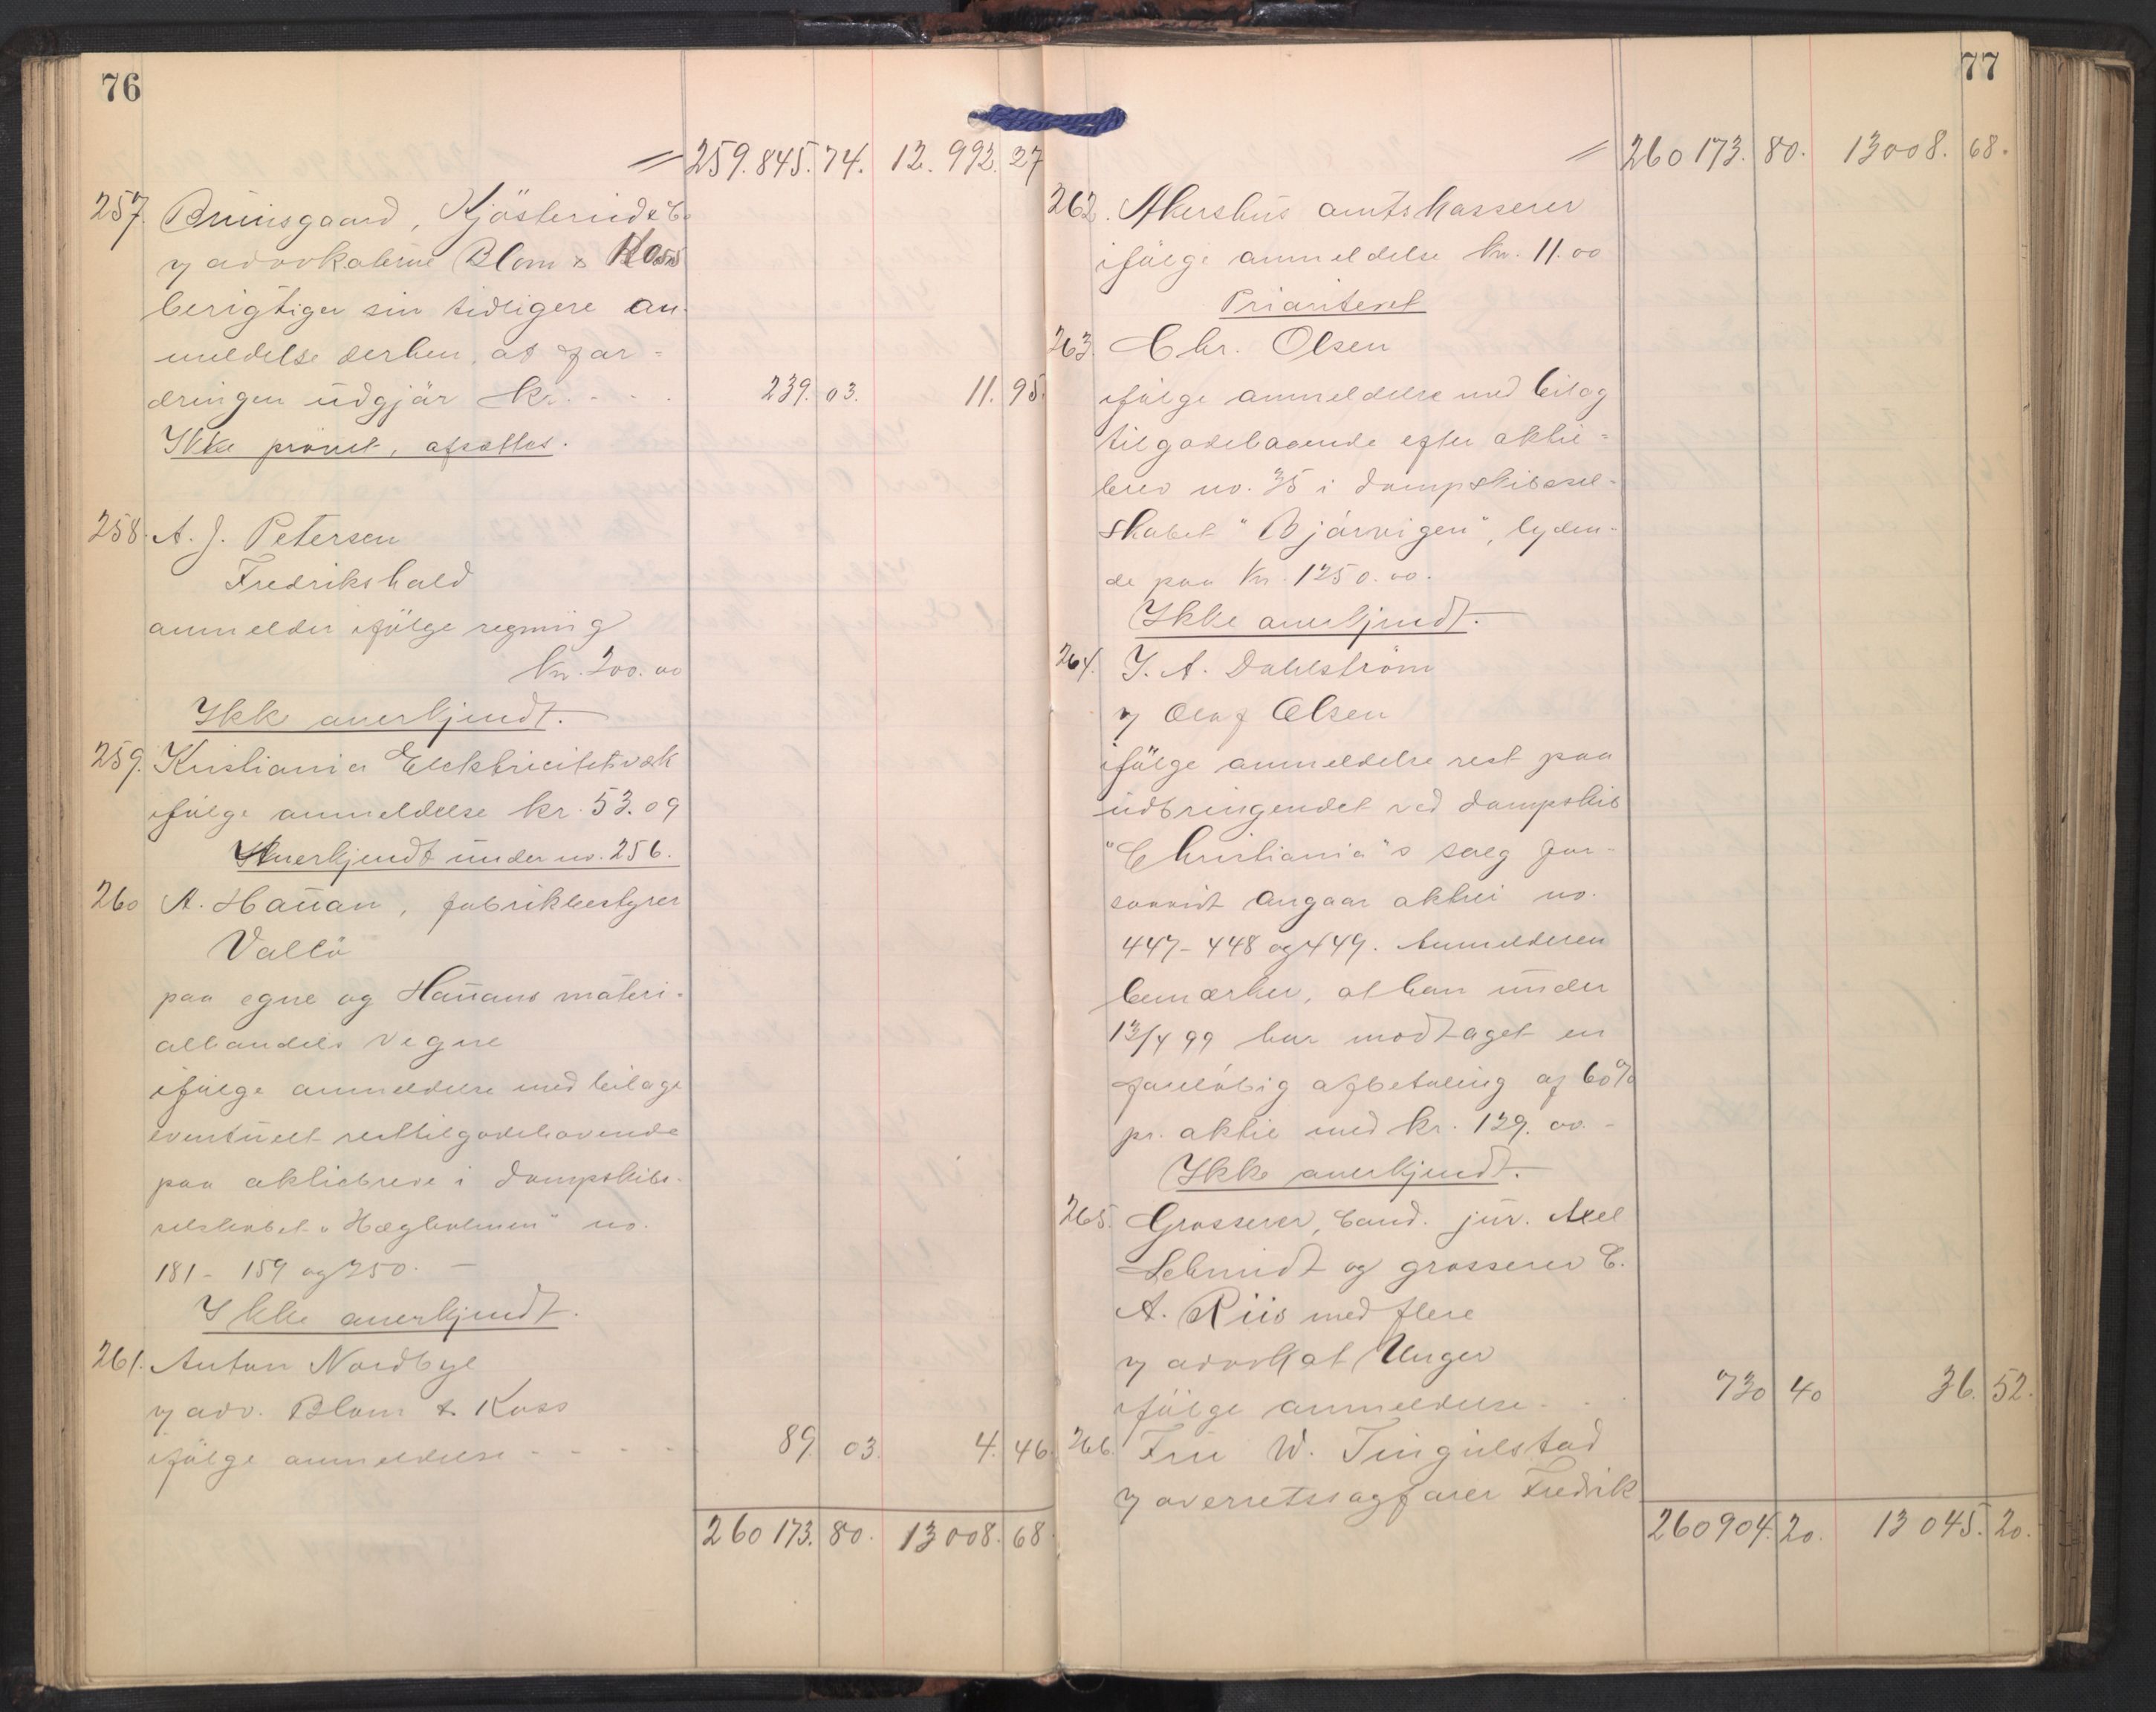 76
259.845. 74. 12. 992. 27
257. Bruusgaard, Kjösterud & Co
v/ advokaterne Blom & Koss
berigtiger sin tidligere an-
meldelse derhen, at for-
dringen udgjör kr. - - - 239. 03. 11. 95.
Ikke prövet, afsattes.
258. A. J. Petersen
Fredrikshald
anmelder ifölge regning
kr. 200.00
Ikke anerkjendt.
259. Kristiania Elektricitetsværk
ifölge anmeldelse kr. 53.09
Anerkjendt under no. 256.
260 A. Hauan, fabrikbestyrer
Vallö
paa egne og Hauans materi-
alhandels vegne
ifölge anmeldelse med bilage
eventuelt resttilgodehavende
paa aktiebreve i dampskibs-
selskabet "Hægholmen" no.
181 - 159 og 250. -
Ikke anerkjendt.
261. Anton Nordbye
v/ adv. Blom & Koss
ifölge anmeldelse - - - - - 89 03. 4. 46.
260 173. 80. 13 008. 68
77
260 173. 80. 13008. 68.
262. Akershus amtskasserer
ifölge anmeldelse kr. 11.00
Prioriteret
263. Chr. Olsen
ifölge anmeldelse med bilag
tilgodehavende efter aktie-
brev no. 35 i dampskibssel-
skabet "Bjørvigen", lyden-
de paa kr. 1250.00.
Ikke anerkjendt.
264. J. A. Dahlström
v/ Olaf Olsen
ifölge anmeldelse rest paa
udbringendet ved dampskib
"Christiania"s salg for-
saavidt angaar aktier no.
447 - 448 og 449. Anmelderen
bemærker, at han under
13/4 99 har modtaget en
foreløbig afbetaling af 60%
pr. aktie med kr. 129.00. -
Ikke anerkjendt.
265. Grosserer, cand. jur. Axel
Schmidt og grosserer C.
A. Riis med flere
v/ advokat Unger
ifölge anmeldelse - - 730 40 36. 52.
266. Fru W. Tingulstad
v/ overretssagfører Fredrik
260904. 20. 13 045. 20.